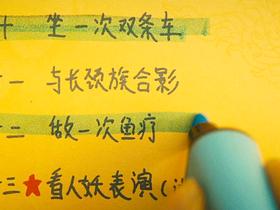 十 坐一次双条车
一 与长颈族合影
二 做一次鱼疗
三★看人妖表演(